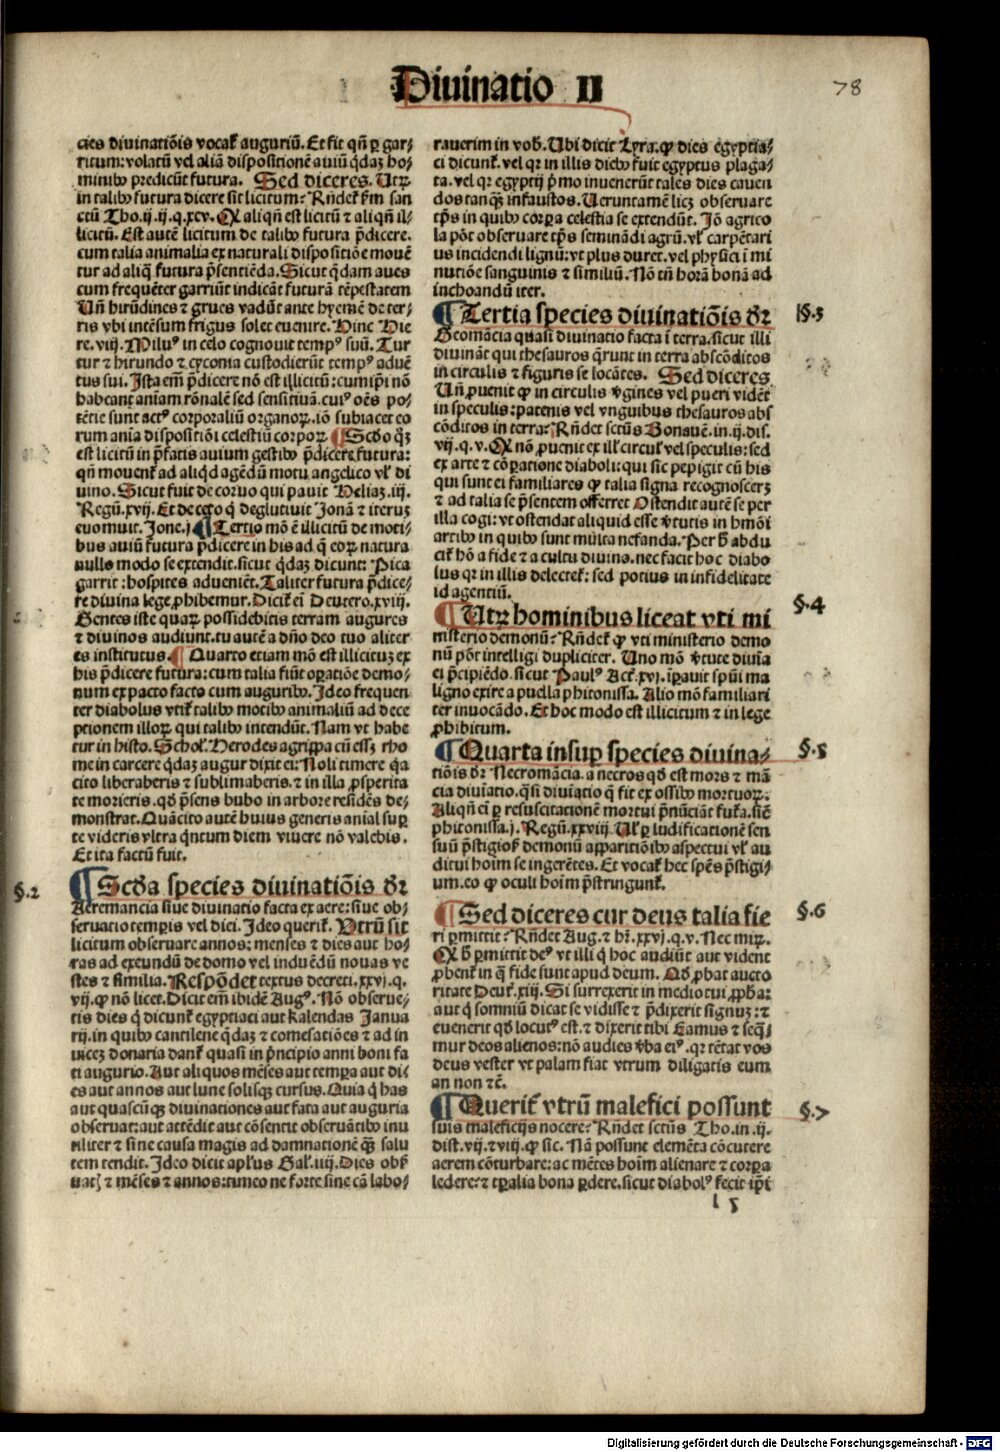 Diuinatio II
78
cies diuinatiõis vocat̃ auguriũ. Et fit qñ ꝑ gar⸗
ritum: volatũ vel aliã dispositionē auiũ q̃daȝ ho⸗
minibꝰ predicũt futura. Sed diceres. Utꝝ
in talibꝰ futura dicere sit licitum? Rñdet ẜm san
ctũ Tho. ij. ij. q. xcv. Ꝙ aliqñ est licitũ ⁊ aliqñ il⸗
licitũ. Est autē licitum de talibꝰ futura p̃dicere.
cum talia animalia ex naturali dispositiõe mouē
tur ad aliq̃ futura p̃sentiēda. Sicut q̃dam aues
cum frequēter garriũt indicãt futurã tēpestatem
Uñ hirũdines ⁊ grues vadũt ante hyemē de ter⸗
ris vbi intēsum frigus solet euenire. Hinc Hie
re. viij. Miluꝰ in celo cognouit tempꝰ suũ. Tur
tur ⁊ hirundo ⁊ cyconia custodierũt tempꝰ aduē
tus sui. Ista em̃ p̃dicere nõ est illicitũ: cum ip̃i nõ
habeant aniam rõnalē sed sensitiuã. cuiꝰ oẽs po⸗
tētie sunt actꝰ corporaliũ organoꝝ. iõ subiacet eo
rum anĩa dispositiõi celestiũ corpoꝝ. ¶ Scðo q̃ȝ
est licitũ in p̃fatis auium gestibꝰ p̃dicere futura:
qñ mouent̃ ad aliqð agēdũ motu angelico vl̃ di
uino. Sicut fuit de coruo qui pauit Heliaȝ. iij.
Regũ. xvij. Et de ceto q̃ deglutiuit Jonã ⁊ iteruȝ
euomuit. Jone. j. ¶ Tertio mõ ē illicitũ de moti⸗
bus auiũ futura p̃dicere in his ad q̃ eoꝝ natura
nullo modo se extendit. sicut q̃daȝ dicunt: Pica
garrit: hospites adueniēt. Taliter futura p̃dice⸗
re diuina lege ꝓhibemur. Dicit̃ eĩ Deutero. xviij.
Gentes iste quaꝝ possidebitis terram augures
⁊ diuinos audiunt. tu autē a dño deo tuo aliter
es institutus. ¶ Quarto etiam mõ est illicituȝ ex
his p̃dicere futura: cum talia fiũt oꝑatiõe demo⸗
num ex pacto facto cum auguribꝰ. Ideo frequen
ter diabolus vtit̃ talibꝰ motibꝰ animaliũ ad dece
ptionem illoꝝ qui talibꝰ intendũt. Nam vt habe
tur in histo. Schol. Herodes agrippa cũ esset rho
me in carcere q̃daȝ augur dixit ei: Noli timere q̃a
cito liberaberis ⁊ sublimaberis. ⁊ in illa ꝓsperita
te morieris. qð p̃sens bubo in arbore residēs de⸗
monstrat. Quãcito autē huius generis anĩal suꝑ
te videris vltra q̃ntum diem viuere nõ valebis.
Et ita factũ fuit.
§.2
¶ Scða species diuinatiõis dr̃
Aeremancia siue diuinatio facta ex aere: siue ob⸗
seruatio temꝑis vel diei. Ideo querit̃. Utrũ sit
licitum obseruare annos: menses ⁊ dies aut ho⸗
ras ad exeundũ de domo vel induēdũ nouas ve
stes ⁊ similia. Respõdet textus decreti. xxvj. q.
vij. ꝙ nõ licet. Dicit em̃ ibidē Augꝰ. Nõ obserue⸗
tis dies q̃ dicunt̃ egyptiaci aut kalendas Janua
rij. in quibꝰ cantilene q̃daȝ ⁊ comesatiões ⁊ ad in
uiceȝ donaria dant̃ quasi in p̃ncipio anni boni fa
ti augurio. Aut aliquos mēses aut temꝑa aut di⸗
es aut annos aut lune solisqȝ cursus. Quia q̃ has
aut quascũqȝ diuinationes aut fata aut auguria
obseruat: aut attēdit aut cõsentit obseruãtibꝰ inu
tiliter ⁊ sine causa magis ad damnationē qȝ salu
tem tendit. Ideo dicit apl̃us Gal. iiij. Dies obß
uatȝ ⁊ mēses ⁊ annos: timeo ne forte sine cã labo⸗
rauerim in vob. Ubi dicit Lyra. ꝙ dies egyptia⸗
ci dicunt̃. vel qr in illis diebꝰ fuit egyptus plaga⸗
ta. vel qr egyptij p̃mo inuenerũt tales dies cauen
dos tanqȝ infaustos. Ueruntamē licȝ obseruare
tp̃s in quibꝰ corꝑa celestia se extendũt. Iõ agrico
la põt obseruare tp̃s seminãdi agrũ. vl̃ carpētari
us incidendi lignũ: vt plus duret. vel physici ĩ mi
nutiõe sanguinis ⁊ similiũ. Nõ tñ horã bonã ad
inchoandũ iter.
§.3
¶ Tertia species diuinatiõis dr̃
Geomãcia quasi diuinatio facta ĩ terra. sicut illi
diuinãt qui thesauros q̃runt in terra abscõditos
in circulis ⁊ figuris se locãtes. Sed diceres.
Uñ ꝓuenit ꝙ in circulis v̾gines vel pueri vidēt
in speculis: patenis vel vnguibus thesauros abs
cõditos in terra? Rñdet sctũs Bonauē. in. ij. dis.
vij. q. v. Ꝙ nõ ꝓuenit ex ill' circul' vel speculis: sed
ex arte ⁊ coõꝑatione diaboli: qui sic pepigit cũ his
qui sunt ei familiares ꝙ talia signa recognosceret
⁊ ad talia se p̃sentem offerret Ostendit autē se per
illa cogi: vt ostendat aliquid esse v̾tutis in hmõi
artibꝰ in quibꝰ sunt multa nefanda. Per h̃ abdu
cit̃ hõ a fide ⁊ a cultu diuino. nec facit hoc diabo
lus qr in illis delectet̃: sed potius in infidelitate
id agentiũ.
§.4
¶ Utꝝ hominibus liceat vti mi
nisterio demonũ? Rñdet̃ ꝙ vti ministerio demo
nũ põt intelligi dupliciter. Uno mõ v̾tute diuĩa
ei p̃cipiēdo. sicut Paulꝰ Act̃. xvj. iꝑauit spũi ma
ligno exire a puella phitonissa. Alio mõ familiari
ter inuocãdo. Et hoc modo est illicitum ⁊ in lege
ꝓhibitum.
§.5
¶ Quarta insuꝑ species diuina⸗
tiõis dr̃ Necromãcia. a necros qð est mors ⁊ mã
cia diuĩatio. q̃si diuĩatio q̃ fit ex ossibꝰ mortuoꝝ.
Aliqñ eĩ ꝑ resuscitationē mortui p̃nũciãt fut̃a. sic̃
phitonissa. j. Regũ. xxviij. Ul̃ ꝑ ludificationē sen
suũ p̃stigiosȝ demonũ apparitiõibꝰ aspectui vl̃ au
ditui hoĩm se ingerētes. Et vocat̃ hec spẽs p̃stigi⸗
um. eo ꝙ oculi hoĩm p̃stringunt̃.
§.6
¶ Sed diceres cur deus talia fie
ri ꝑmittit? Rñdet Aug. ⁊ hr̃. xxvj. q. v. Nec miꝝ.
Ꝙ h̃ ꝑmittit deꝰ vt illi q̃ hoc audiũt aut vident
ꝓbent̃ in q̃ fide sunt apud deum. Qð ꝓbat aucto
ritate Deut̃. xiij. Si surrexerit in medio tui ꝓph̃a:
aut q̃ somniũ dicat se vidisse ⁊ p̃dixerit signuȝ: ⁊
euenerit qð locutꝰ est. ⁊ dixerit tibi Eamus ⁊ seq̃⸗
mur deos alienos: nõ audies v̾ba eiꝰ. qr tētat vos
deus vester vt palam fiat vtrum diligatis eum
an non ⁊c̃.
§.7
¶ Querit̃ vtrũ malefici possunt
suis maleficijs nocere? Rñdet sctũs Tho. in. ij.
dist. vij. ⁊ viij. ꝙ sic. Nã possunt elemēta cõcutere
aerem cõturbare: ac mētes hoĩm alienare ⁊ corꝑa
ledere: ⁊ tꝑalia bona ꝑdere. sicut diabolꝰ fecit ip̃i
l 5
Digitalisierung gefördert durch die Deutsche Forschungsgemeinschaft - DFG